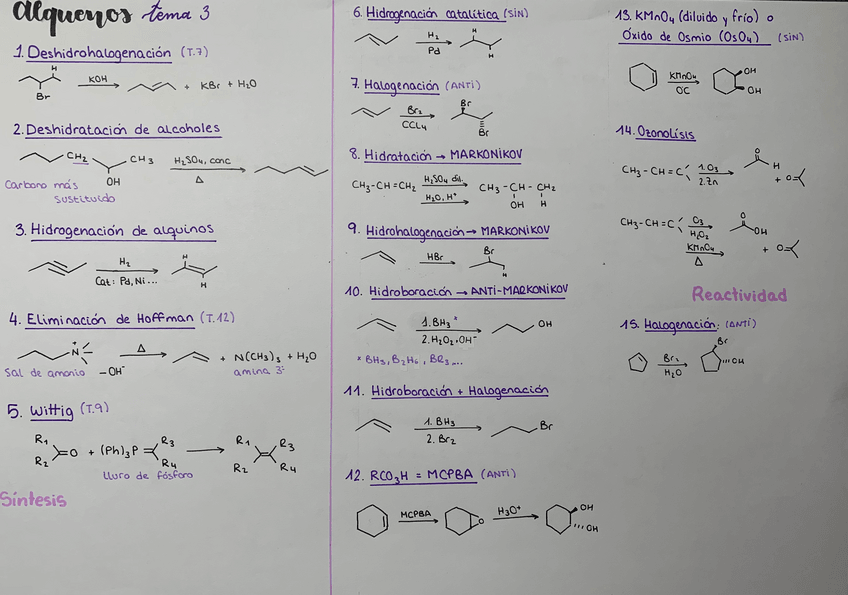 Alquenos tema 3
1. Deshidrohalogenación (T.7)
H
Br
KOH
+ KBr + H₂O
2. Deshidratación de alcoholes
CH₂
CH₃
OH
H₂SO₄, conc
Δ
Carbono más
sustituido
3. Hidrogenación de alquinos
H₂
Cat: Pd, Ni...
H
H
4. Eliminación de Hoffman (T.12)
N⁺
-OH⁻
Δ
+ N(CH₃)₃ + H₂O
Sal de amonio
amina 3ª
5. Wittig (T.9)
R₁
R₂
=O + (Ph)₃P=
R₃
R₄
R₁
R₂
R₃
R₄
lluro de fósforo
Síntesis
6. Hidrogenación catalítica (SIN)
H₂
Pd
H
H
7. Halogenación (ANTI)
Br₂
CCL₄
Br
Br
8. Hidratación → MARKONIKOV
CH₃-CH=CH₂
H₂SO₄ dil.
H₂O, H⁺
CH₃ - CH - CH₂
OH H
9. Hidrohalogenación → MARKONIKOV
HBr
Br
H
10. Hidroboración → ANTI-MARKONIKOV
1. BH₃ *
2. H₂O₂, OH⁻
OH
* BH₃, B₂H₆, BR₃,...
11. Hidroboración + Halogenación
1. BH₃
2. Br₂
Br
12. RCO₃H = MCPBA (ANTI)
MCPBA
O
H₃O⁺
OH
OH
13. KMnO₄ (diluido y frío) o
Óxido de Osmio (OsO₄) (SIN)
KMnO₄
0ºC
OH
OH
14. Ozonolísis
CH₃ - CH = C
1. O₃
2. Zn
O
H
+ O=
CH₃ - CH = C
O₃
H₂O₂
KMnO₄
Δ
O
OH
+ O=
Reactividad
15. Halogenación: (ANTI)
Br₂
H₂O
Br
OH